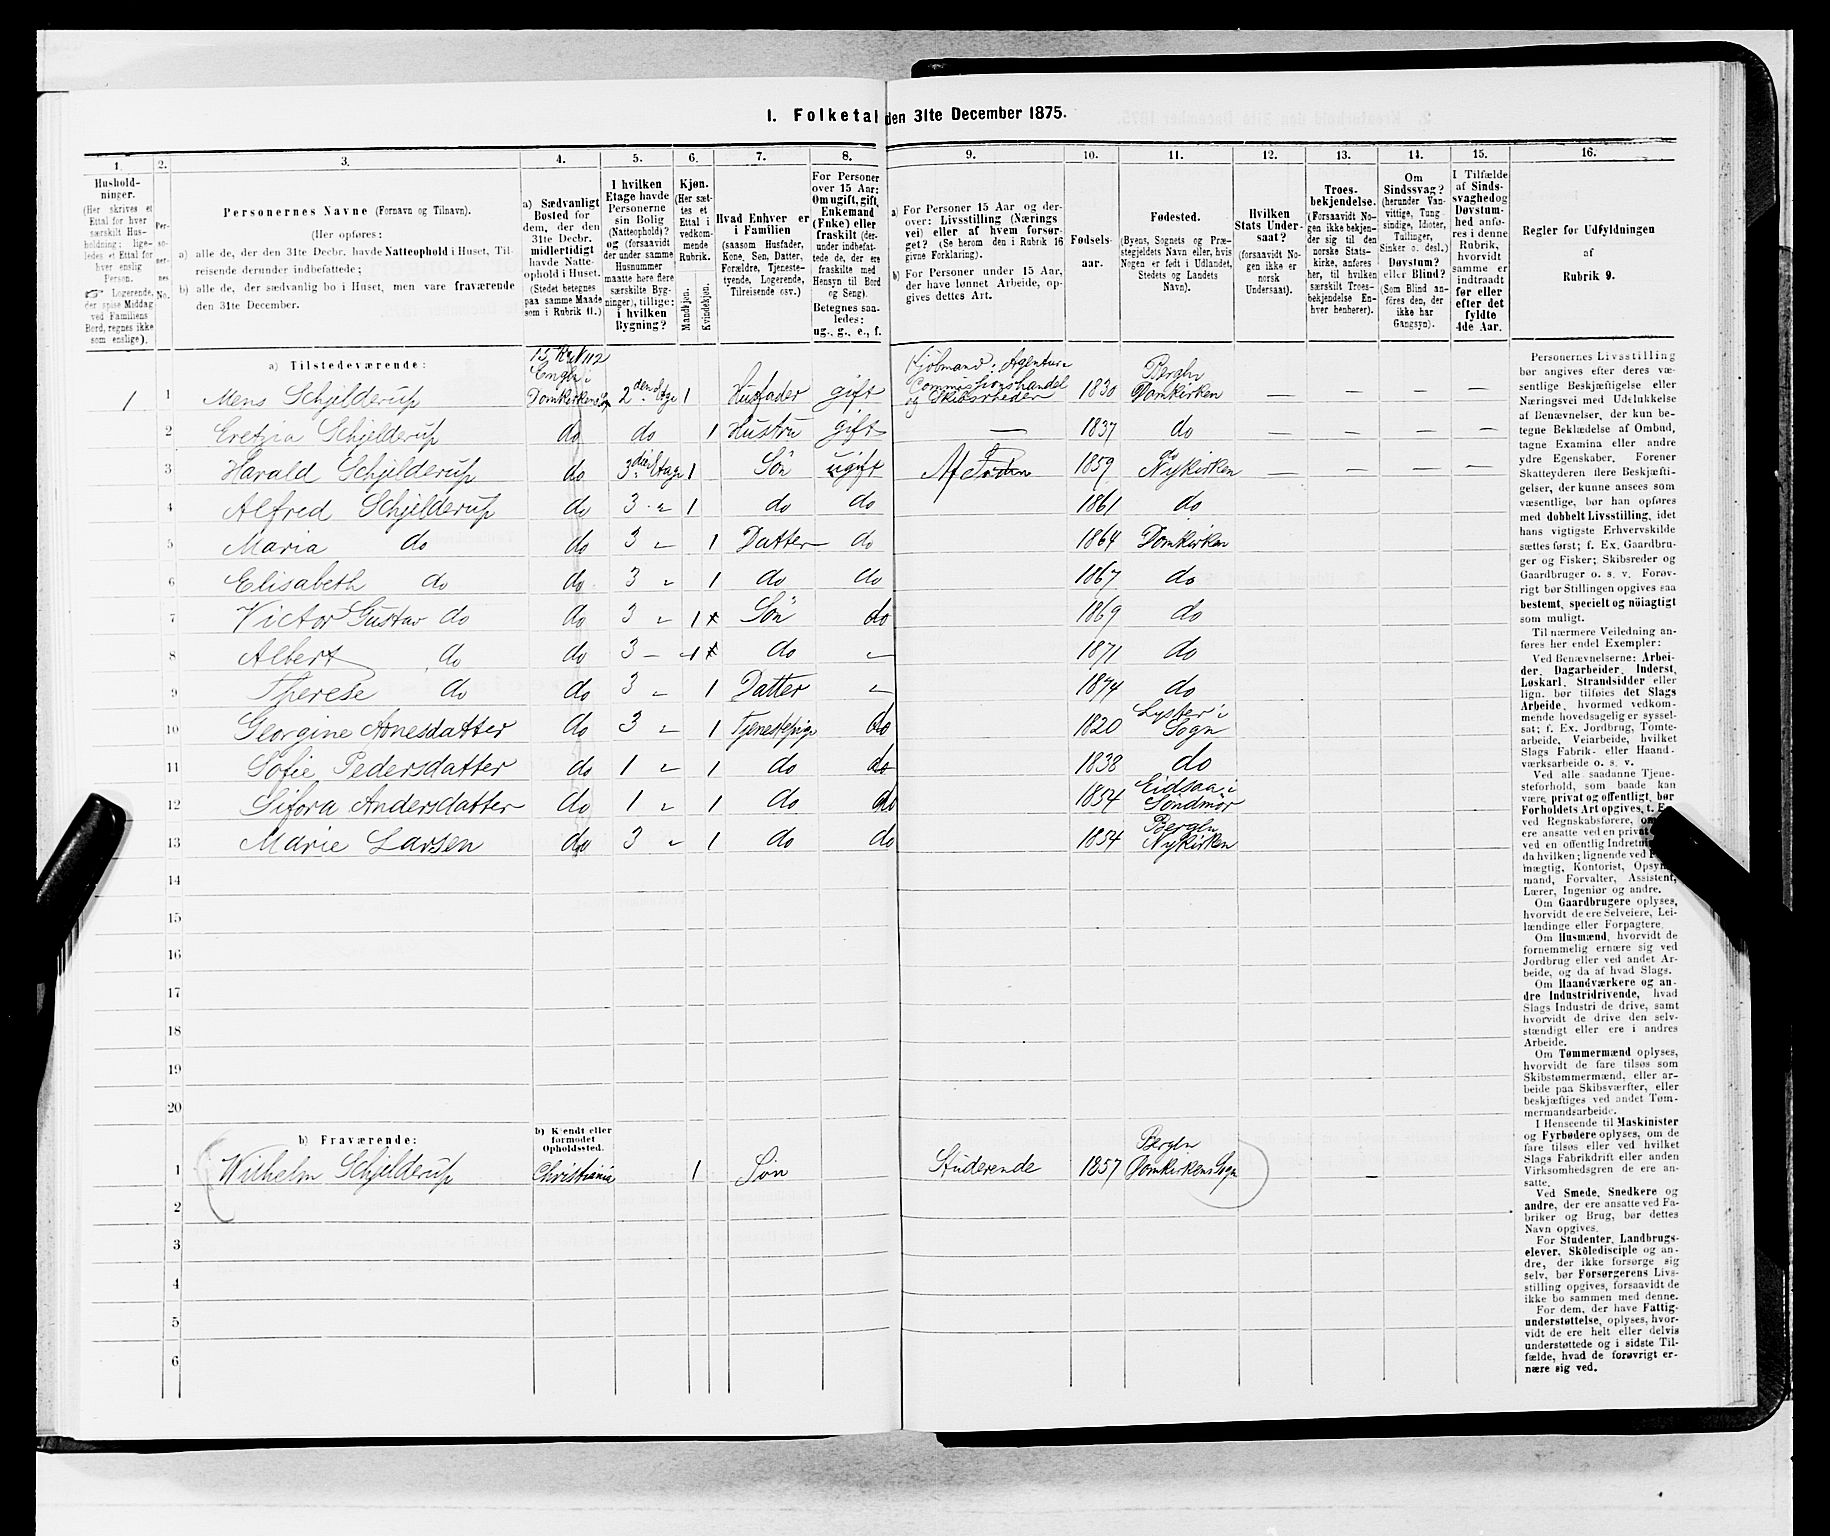 1. Folketal den 31te December 1875.
1. 2. 3. 4. 5. 6. 7. 8. 9. 10. 11. 12. 13. 14. 15. 16.
Hushold-
ninger.
(Her skrives et
Ettal for hver
særskilt Hus-
holdning; lige-
ledes et Ettal for
hver enslig
Person.
☞ Logerende,
der spise Middag
ved Familiens
Bord, regnes ikke
som enslige).
Per-
so-
ner-
nes
No.
Personernes Navne (Fornavn og Tilnavn).
(Her opføres:
a) alle de, der den 31te Decbr. havde Natteophold i Huset, Til-
reisende derunder indbefattede;
b) alle de, der sædvanlig bo i Huset, men vare fraværende
den 31te December.
a) Sædvanligt
Bosted for
dem, der den
31te Decbr.
midlertidigt
havde Natte-
ophold i Huset.
(Stedet betegnes
paa samme Maade
som i Rubrik 11.)
I hvilken
Etage havde
Personerne
sin Bolig
(Natteophold)?
og (forsaavidt
der under samme
Husnummer
maatte høre flere
særskilte Byg-
ninger), tillige:
i hvilken
Bygning?
Kjøn.
(Her sæt-
tes et
Ettal i
vedkom-
mende
Rubrik.
Mandkjøn.
Kvindekjøn.
Hvad Enhver er
i Familien
(saasom Husfader,
Kone, Søn, Datter,
Forældre, Tjeneste-
tyende, Logerende,
Tilreisende osv.)
For Personer
over 15 Aar:
Om ugift, gift,
Enkemand
(Enke) eller
fraskilt (der-
under indbefat-
tede de, der ere
fraskilte med
Hensyn til Bord
og Seng).
Betegnes saa-
ledes:
ug., g., e., f.
a) For Personer 15 Aar og der-
over: Livsstilling (Nærings
vei) eller af hvem forsør-
get? (Se herom den i Rubrik 16
givne Forklaring).
b) For Personer under 15 Aar,
der have lønnet Arbeide, op-
gives dettes Art.
Fødsels-
aar.
Fødested.
(Byens, Sognets og Præ-
stegjeldets Navn eller, hvis
Nogen er født i Udlandet,
Stedets og Landets
Navn).
Hvilken
Stats Under-
saat?
(forsaavidt No-
gen ikke er
norsk
Undersaat).
Troes-
bekjendelse.
(Forsaavidt No-
gen ikke bekjen-
der sig til den
norske Stats-
kirke, anføres
her, til hvilken
særskilt Troes-
bekjendelse En-
hver henhører).
Om
Sindssvag?
(herunder Van-
vittige, Tung
sindige, Idioter,
Tullinger,
Sinker o. desl.)
Døvstum?
eller Blind?
(Som Blind an-
føres den, der
ikke har
Gangsyn).
I Tilfælde
af Sinds-
svaghed og
Døvstum-
hed anfø-
res i denne
Rubrik,
hvorvidt
samme er
indtraadt
før eller
efter det
fyldte
4de Aar.
Regler før Udfyldningen
af
Rubrik 9.
a) Tilstedeværende:
1 1 Mens Schjelderup Engen i Domkirkens 2den Etage 1 Husfader gift Kjøbmand: Agentur Commissionshandel og Skibsrheder 1830 Bergen Domkirken — — — —
2 Eretzia Schjelderup do do 1 Hustru gift — 1837 do — — — —
3 Harald Schjelderup do 3die Etage 1 Søn ugift 1859 do Nykirken — — — —
4 Alfred Schjelderup do 3 " 1 do do 1861 do
5 Maria do do 3 " 1 Datter do 1864 Domkirken
6 Elisabeth do do 3 " 1 do do 1867 do
7 Victor Gustav do do 3 " 1 Søn do 1869 do
8 Albert do do 3 — 1 do " 1871 do
9 Therese do do 3 " 1 Datter " 1874 do
10 Georgine Arnesdatter do 3 " 1 Tjenestepige do 1820 Lyster i Sogn
11 Sofie Pedersdatter do 1 " 1 do do 1838 do
12 Sifora Andersdatter do 1 " 1 do do 1854 Eidsaa i Søndmør
13 Marie Larsen do 3 " 1 do do 1854 Bergen Nykirken
14
15
16
17
18
19
20
b) Fraværende:
b) Kjendt eller
formodet
Opholdssted.
1 Wilhelm Schjelderup Christiania 1 Søn Studerende 1857 Bergen Domkirkens Sogn —
2
3
4
5
6
Personernes Livsstilling
bør angives efter deres væ-
sentlige Beskjæftigelse eller
Næringsvei med Udelukkelse
af Benævnelser, der kun be-
tegne Beklædelse af Ombud,
tagne Examina eller andre
ydre Egenskaber. Forener
Skatteyderen flere Beskjæfti-
gelser, der kunne ansees som
væsentlige, bør han opføres
med dobbelt Livsstilling, idet
hans vigtigste Erhvervskilde
sættes først; f. Ex. Gaardbru-
ger og Fisker; Skibsreder og
Gaardbruger o. s. v. Forøv-
rigt bør Stillingen opgives saa
bestemt, specielt og nöiagtigt
som muligt.
Til nærmere Veiledning an-
føres her endel Exempler:
Ved Benævnelserne: Arbei-
der, Dagarbeider, Inderst,
Løskarl, Strandsidder eller
lign. bør tilføies det Slags
Arbeide, hvormed vedkom-
mende hovedsagelig er syssel-
sat; f. Ex. Jordbrug, Tomte-
arbeide, Veiarbeide, hvilket
Slags Fabrik- eller Haand-
værksarbeide o. s. v.
Ved alle saadanne Tjene-
steforhold, som baade kan
være privat og offentligt, bør
Forholdets Art opgives, t. E.
ved Regnskabsførere,
ere ansatte ved en privat
ved en offentlig Indretn
da hvilken; lignende ved
mægtig, Kontorist, Opsyn
mand, Forvalter, Assistent,
Lærer, Ingeniør og andre.
Om Gaardbrugere oplyses,
hvorvidt de ere Selveiere, Lei-
lændinge eller Forpagtere.
Om Husmænd, hvorvidt de
fornemmelig ernære sig ved
Jordbrug eller ved andet Ar-
beide, og da af hvad Slags.
Om Haandværkere og an-
dre Industridrivende, hvad
Slags Industri de drive, samt
hvorvidt de drive den selv-
stændigt eller ere i andres
Arbeide.
Om Tømmermænd oplyses,
hvorvidt de fare tilsøs som
Skibstømmermænd, eller ar-
beide paa Skibsværfter, eller
beskjæftiges ved andet Tøm-
mermandsarbeide.
I Henseende til Maskinister
og Fyrbødere oplyses, om de
fare tilsøs eller ved hvilket
Slags Fabrikdrift eller anden
Virksomhedsgren de ere an-
satte.
Ved Smede, Snedkere og
andre, der ere ansatte ved Fa-
briker og Brug, bør dettes
Navn opgives.
For Studenter, Landbrugs-
elever, Skôledisciple og an-
dre, der ikke forsørge sig
selv, bør Forsørgerens Livs-
stilling opgives, forsaavidt de
ikke bo sammen med denne.
For dem, der have Fattig-
understøttelse, oplyses, hvor-
vidt de ere helt eller delvis
understøttede og i sidste Til-
fælde, hvad de forøvrigt er-
nære sig ved.